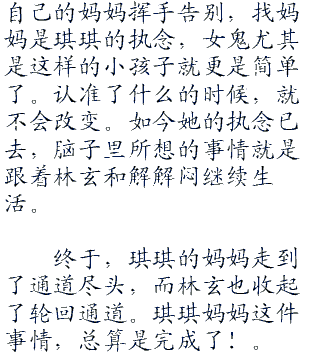 自己的妈妈挥手告别，找妈
妈是琪琪的执念，女鬼尤其
是这样的小孩子就更是简单
了。认准了什么的时候，就
不会改变。如今她的执念已
去，脑子里所想的事情就是
跟着林玄和解解闷继续生
活。
终于，琪琪的妈妈走到
了通道尽头，而林玄也收起
了轮回通道。琪琪妈妈这件
事情，总算是完成了！。